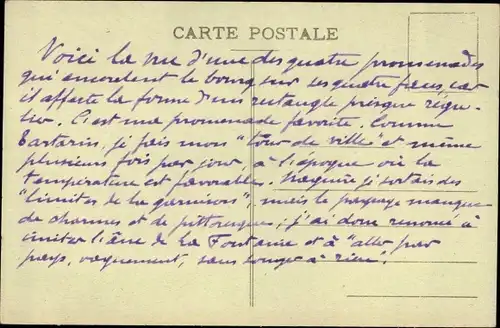 CARTE POSTALE
Voici la vue d'une des quatre promenades
qui encerclent le bourg sur ses quatre faces, car
il affecte la forme d'un rectangle presque régu-
lier. C'est ma promenade favorite. Comme
Tartarin, je fais mon "tour de ville" et même
plusieurs fois par jour, à l'époque où la
température est favorable. Naguère je sortais des
"limites de la garnison", mais le paysage manque
de charmes et de pittoresque; j'ai donc renoncé à
imiter l'âne de La Fontaine et à "aller par
pays, vaguement, sans songer à rien".